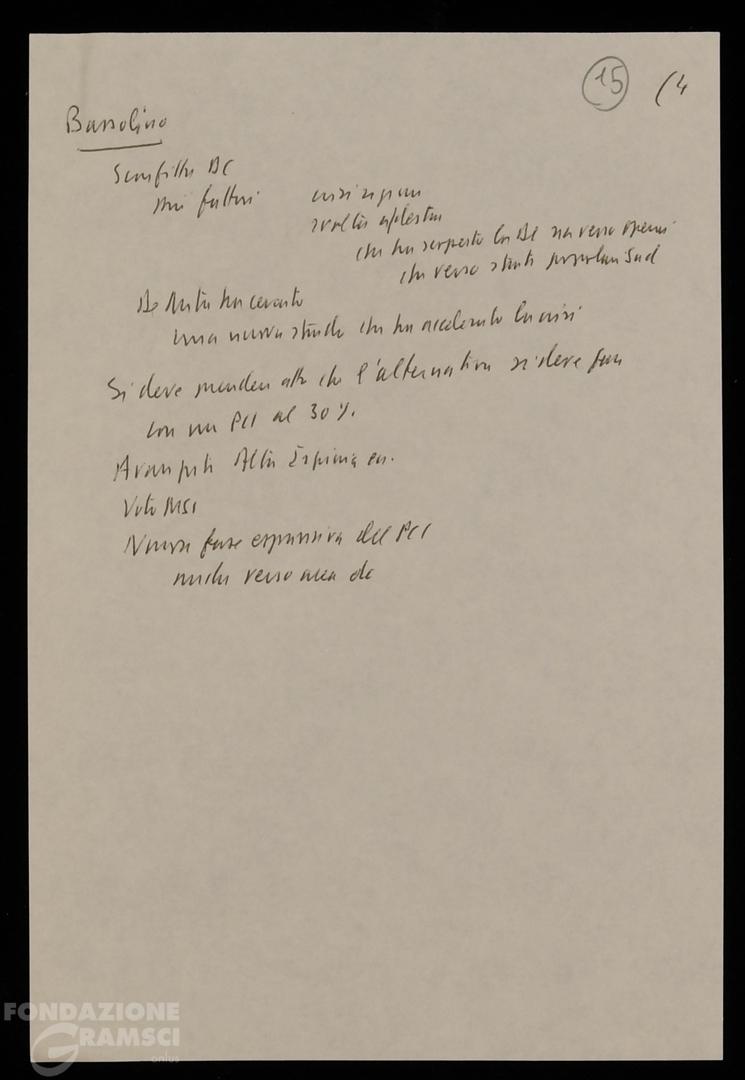 15 (4
Bassolino
Sconfitta DC
più fattori crisi
svolta a destra
che ha scoperto la DC sia verso operai
che verso strati popolari Sud
De Mita ha cercato
una nuova strada che ha accelerato la crisi
Si deve prendere atto che l'alternativa si deve fare
con un PCI al 30%.
Avanzati Alta Irpinia
Voto MSI
Nuova fase espansiva del PCI
anche verso area dc
FONDAZIONE
GRAMSCI
onlus